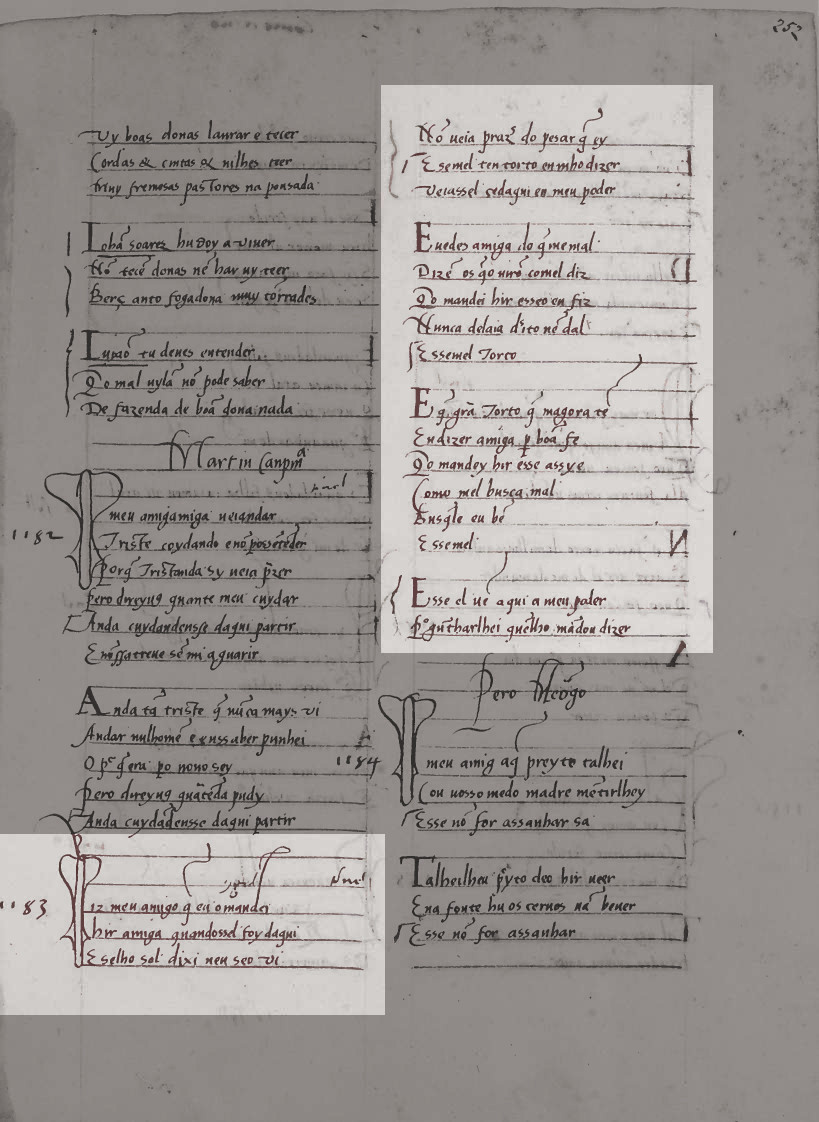 252
Vy boas donas laurar e tecer
Cordas & cintas & nilhes teer
muy fremosas pastores na pousada
Lobā soarez hu soy a uiuer
Nō tecē donas nē har uy teer
Berç anto fogadona muy tōrcades
Lupaō tu deues entender
Q̄o mal uylā nō pode saber
De fazenda de boā dona nada
Martin Canpina
1182
meu amigamiga ueiandar
Triste coydando enō possētēder
Porq̄ Tristanda sy ueia p̄zer
pero direyu9 quante meu cuydar
Anda cuydandensse daqui partir
Enōssatreue sē mi aguarir
Anda tā triste q̄ nūca mays vi
Andar nulhomē e enssaber punhei
O p̄ q̄ era po nono sey
Pero direyu9 quātēda pudy
Anda cuydādensse daqui partir
1183
iz meu amigo q̄ eu o mandei
hir amiga quandossel foy daqui
E selho sol dixi nen seo vi
Nō ueia praz̄ do pesar q̄ ey
E semel ten torto en mho dizer
Veiassel cedaqui en meu poder
E uedes amiga do q̄ me mal
Dizē os q̄o uirō comel diz
Q̄o mandei hir e sseo eu fiz
Nunca delaia dito nē dal
E ssemel Torto
E q̄ grā Torto q̄ magora tē
En dizer amiga p boā fe
Q̄o mandey hir e sse assy e
Como mel busca mal
Busq̄lle eu bē
E ssemel
E sse el uē aqui a meu poder
P̄guntharlhei quē lho mādou dizer
Pero Meogo
1184
meu amig aq̄ preyto talhei
Cou uosso medo madre mētirlhey
E sse nō for assanhar sa
Talheilheu p̄yto deo hir ueer
Ena fonte hu os ceruos uā beuer
E sse nō for assanhar